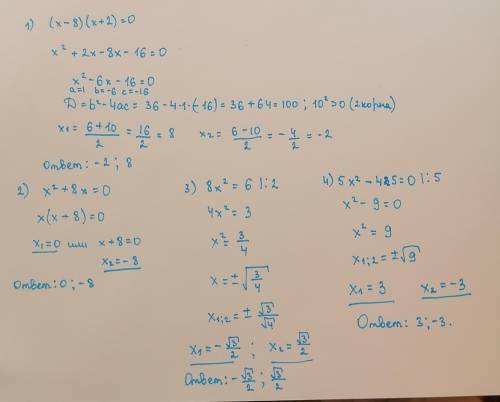 1) (x-8)(x+2)=0
x²+2x-8x-16=0
x²-6x-16=0
a=1 b=-6 c=-16
D=b²-4ac=36-4·1·(-16)=36+64=100; 10²>0 (2 корня)
x1=(6+10)/2=16/2=8 x2=(6-10)/2=-4/2=-2
Ответ: -2; 8
2) x²+8x=0
x(x+8)=0
x1=0 или x+8=0
x2=-8
Ответ: 0; -8
3) 8x²=6 |:2
4x²=3
x²=3/4
x=±√(3/4)
x1;2=±√3/√4
x1=-√3/2; x2=√3/2
Ответ: -√3/2; √3/2
4) 5x²-45=0 |:5
x²-9=0
x²=9
x1;2=±√9
x1=3 x2=-3
Ответ: 3;-3.